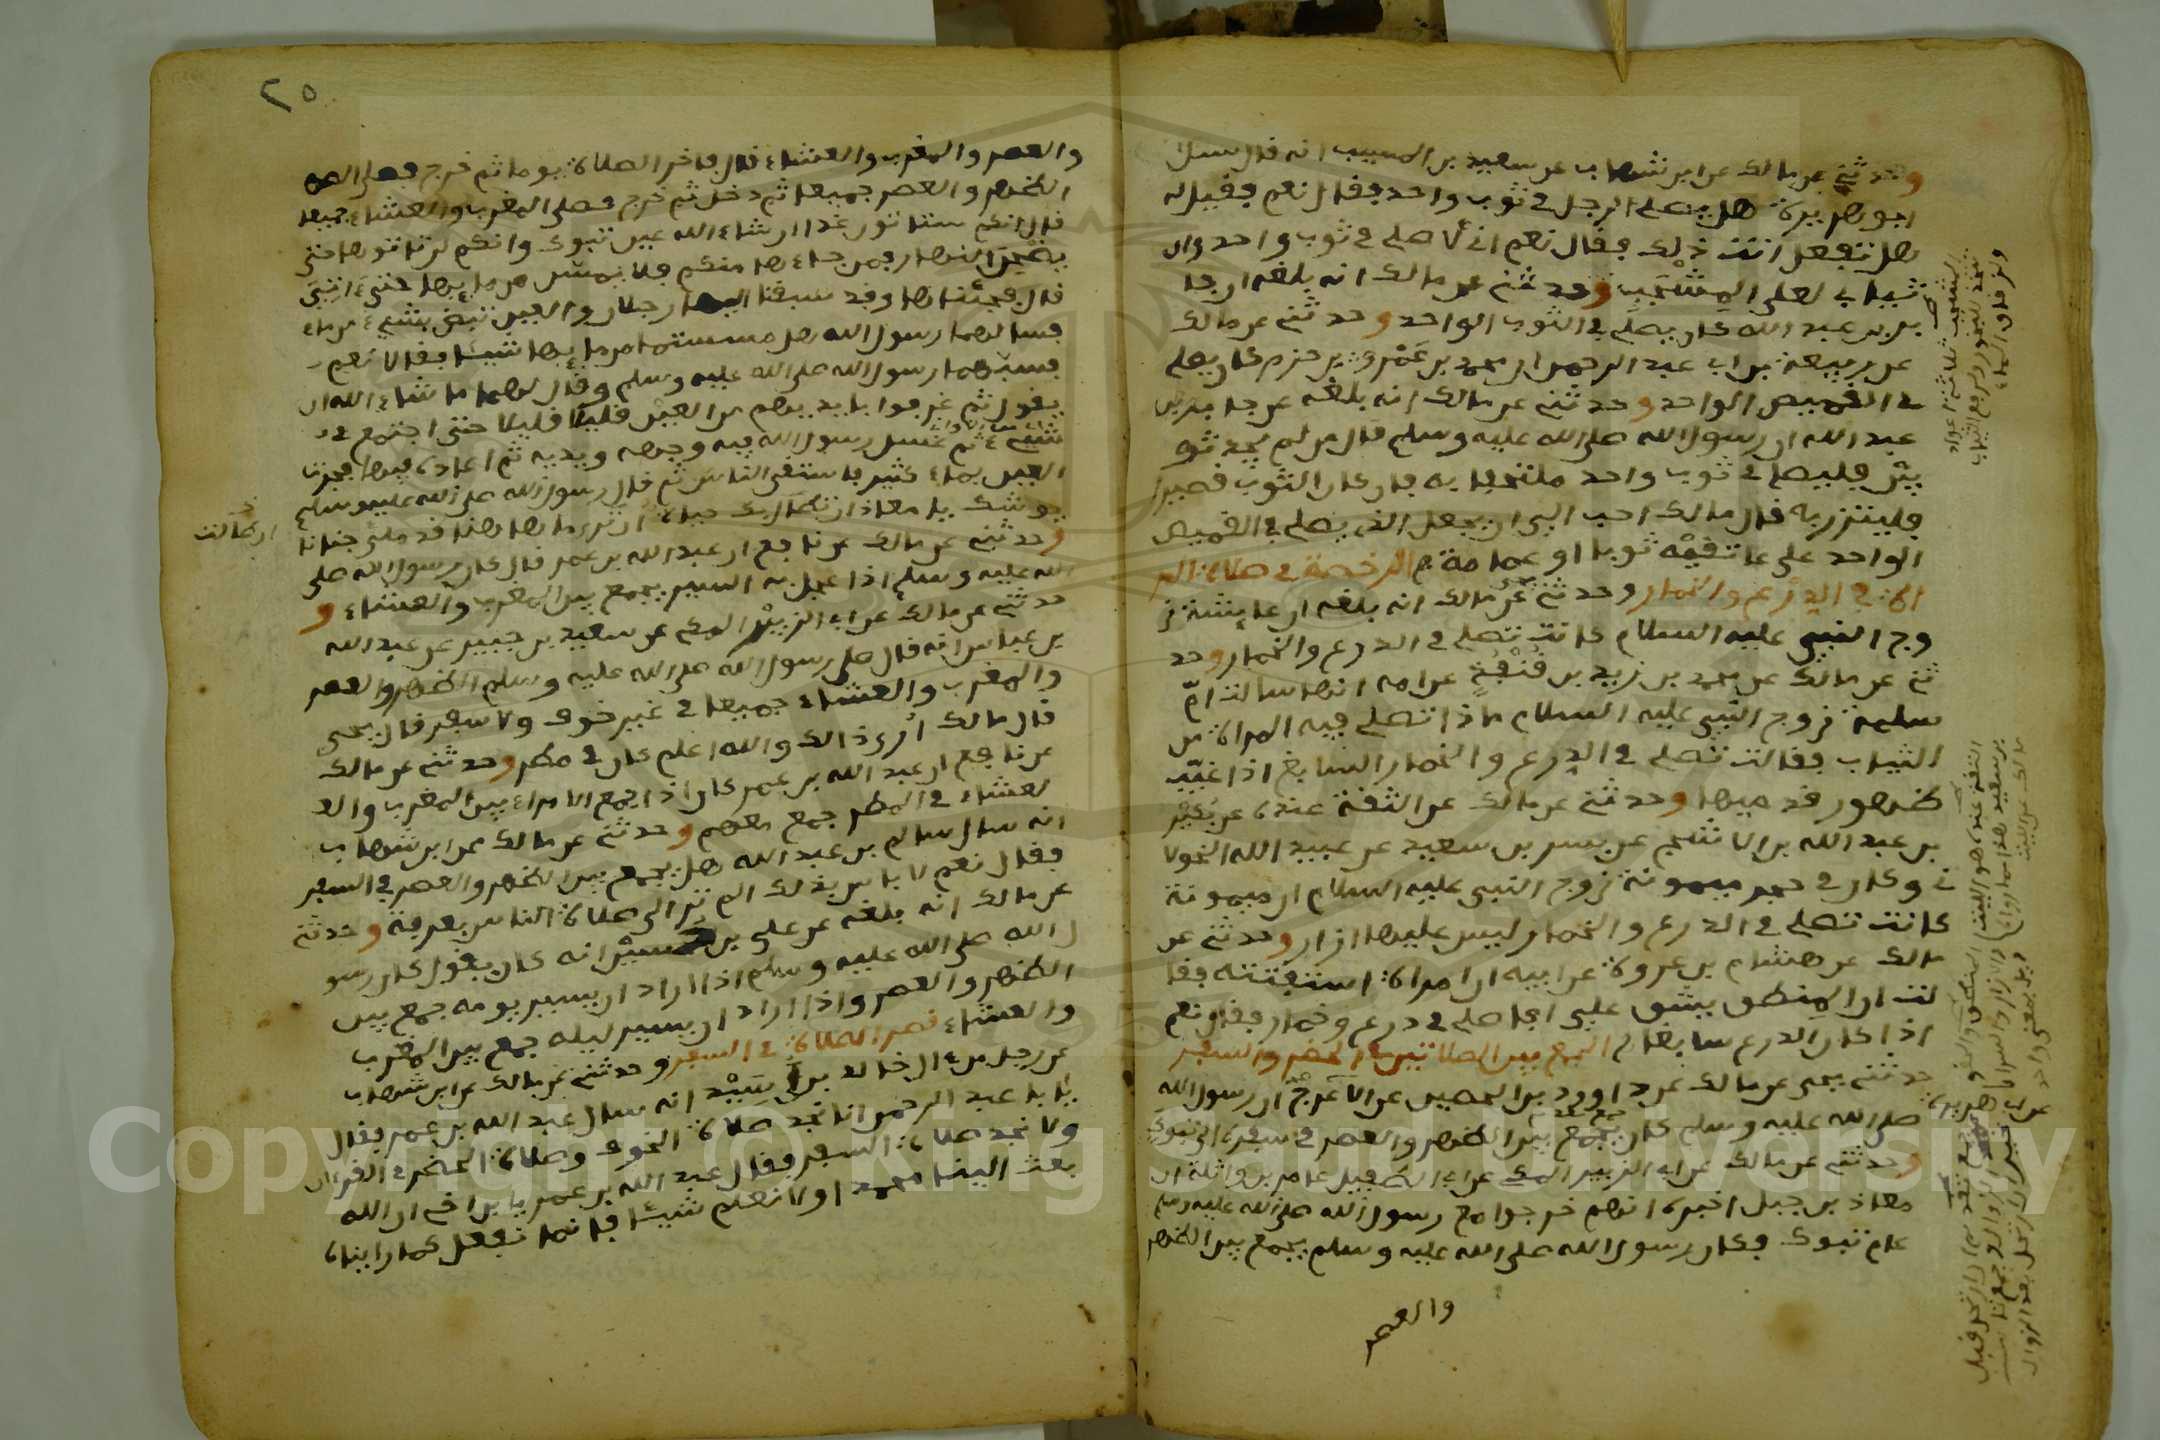 وحدثني عن مالك عن ابن شهاب عن سعيد بن المسيب انه قال سئل
ابو هريرة هل يصلي الرجل في ثوب واحد فقال نعم فقيل له
هل تفعل انت ذلك فقال نعم اني لاصلي في ثوب واحد وان
ثيابي لعلى المشجب وحدثني عن مالك انه بلغه ان جا
بر بن عبد الله كان يصلي في الثوب الواحد وحدثني عن مالك
عن ربيعة بن ابي عبد الرحمن ان محمد بن عمرو بن حزم كان يصلي
في القميص الواحد وحدثني عن مالك انه بلغه عن جابر بن
عبد الله ان رسول الله صلى الله عليه وسلم قال من لم يجد ثو
بين فليصل في ثوب واحد ملتحفا به فان كان الثوب قصيرا
فليتزر به قال مالك احب الي ان يجعل الذي يصلي في القميص
الواحد على عاتقيه ثوبا او عمامة الرخصة في صلاة المر
اة في الدرع والخمار وحدثني عن مالك انه بلغه ان عايشة ز
وج النبي عليه السلام كانت تصلي في الدرع والخمار وحد
ثني عن مالك عن محمد بن زيد بن قنفذ عن امه انها سالت ام
سلمة زوج النبي عليه السلام ماذا تصلي فيه المراة من
الثياب فقالت تصلي في الدرع والخمار السابغ اذا غيب
ظهور قدميها وحدثني عن مالك عن الثقة عنده عن بكير
بن عبد الله بن الاشج عن بسر بن سعيد عن عبيد الله الخولا
ني وكان في حجر ميمونة زوج النبي عليه السلام ان ميمونة
كانت تصلي في الدرع والخمار ليس عليها ازار وحدثني عن
مالك عن هشام بن عروة عن ابيه ان امراة استفتته فقا
لت ان المنطق يشق علي افاصلي في درع وخمار فقال نعم
اذا كان الدرع سابغا الجمع بين الصلاتين في الحضر والسفر
حدثني يحيى عن مالك عن داوود بن الحصين عن الاعرج ان رسول الله
صلى الله عليه وسلم كان يجمع بين الظهر والعصر في سفره الى تبوك
وحدثني عن مالك عن ابي الزبير المكي عن ابي الطفيل عامر بن واثلة ان
معاذ بن جبل اخبره انهم خرجوا مع رسول الله صلى الله عليه وسلم
عام تبوك فكان رسول الله صلى الله عليه وسلم يجمع بين الظهر
والعصر
٢٥
والعصر والمغرب والعشاء قال فاخر الصلاة يوما ثم خرج فصلى
الظهر والعصر جميعا ثم دخل ثم خرج فصلى المغرب والعشاء جميعا
قال انكم ستاتون غدا ان شاء الله عين تبوك وانكم لن تاتوها حتى
يضحى النهار فمن جاءها منكم فلا يمس من مايها حتى ءاتي
قال فجئناها وقد سبقنا اليها رجلان والعين تبض بشيء من ماء
فسالهما رسول الله هل مسستما من مايها شيئا فقالا نعم
فسبهما رسول الله صلى الله عليه وسلم وقال لهما ما شاء الله ان
يقول ثم غرفوا بايديهم من العين قليلا قليلا حتى اجتمع في
شيء ثم غسل رسول الله فيه وجهه ويديه ثم اعاده فيها فجرت
العين بماء كثير فاستقى الناس ثم قال رسول الله صلى الله عليه وسلم
يوشك يا معاذ ان طالت بك حياة ان ترى ما هاهنا قد ملئ جنانا
وحدثني عن مالك عن نافع ان عبد الله بن عمر قال كان رسول الله صلى
الله عليه وسلم اذا عجل به السير يجمع بين المغرب والعشاء و
حدثني عن مالك عن ابي الزبير المكي عن سعيد بن جبير عن عبد الله
بن عباس انه قال صلى رسول الله صلى الله عليه وسلم الظهر والعصر
والمغرب والعشاء جميعا في غير خوف ولا سفر قال يحيى
قال مالك أرى ذالك والله اعلم كان في مطر وحدثني عن مالك
عن نافع ان عبد الله بن عمر كان اذا جمع الامراء بين المغرب والع
لعشاء في المطر جمع معهم وحدثني عن مالك عن ابن شهاب
انه سال سالم بن عبد الله هل يجمع بين الظهر والعصر في السفر
فقال نعم لا باس بذلك الم تر الى صلاة الناس بعرفة وحدثني
عن مالك انه بلغه عن علي بن حسين انه كان يقول كان رسو
ل الله صلى الله عليه وسلم اذا اراد ان يسير يومه جمع بين
الظهر والعصر واذا اراد ان يسير ليله جمع بين المغرب
والعشاء قصر الصلاة في السفر وحدثني عن مالك عن ابن شهاب
عن رجل من ءال خالد بن أسيد انه سال عبد الله بن عمر فقال
يا با عبد الرحمن انا نجد صلاة الخوف وصلاة الحضر في القرءان
ولا نجد صلاة السفر فقال عبد الله بن عمر يا بن اخي ان الله
بعث الينا محمدا ولا نعلم شيئا فانما نفعل كما رايناه
Copyright © King Saud University